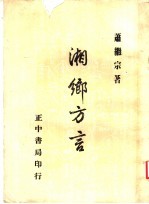 蕭繼宗著
湘鄉方言
正中書局印行